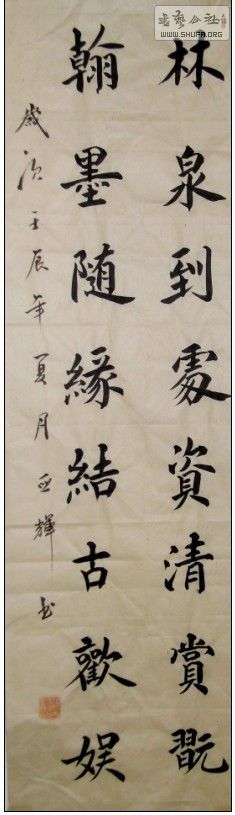 林泉到處資清賞翫
翰墨随緣結古歡娱
歲次壬辰年夏月亚輝书
書藝公社
WWW.SHUFA.ORG